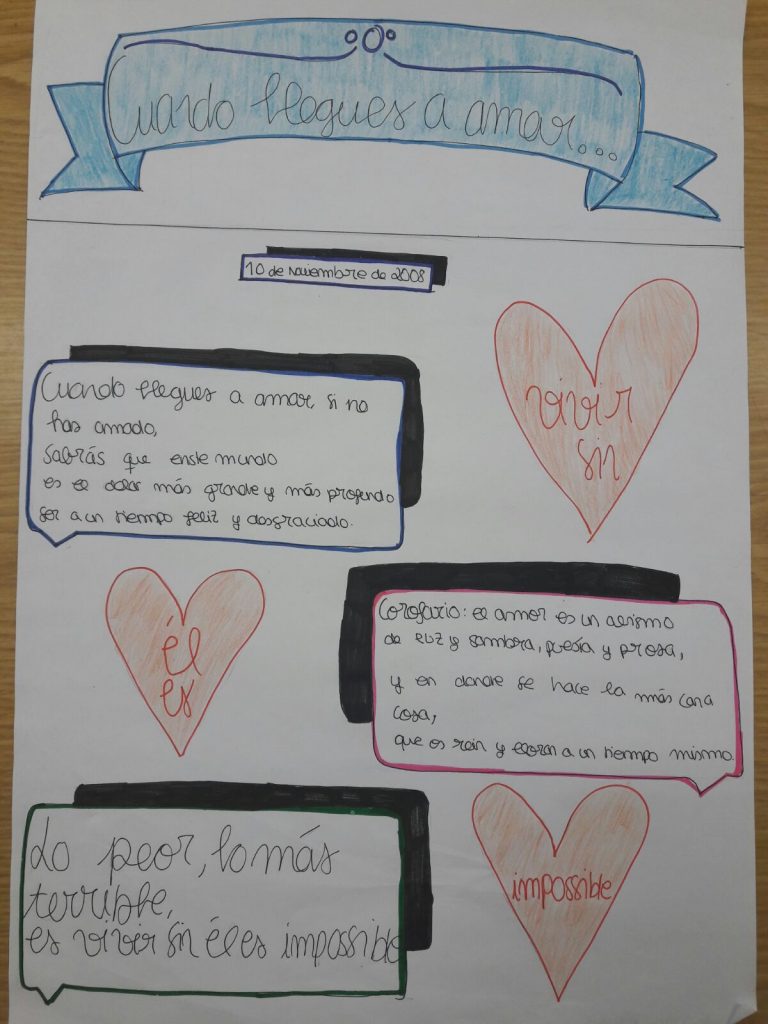 Cuando llegues a amar...
10 de noviembre de 2008
Cuando llegues a amar, si no
has amado,
Sabrás que enste mundo
es el dolor más grande y más profundo
ser a un tiempo feliz y desgraciado.
vivir
sin
él
es
Corolario: el amor es un abismo
de luz y sombra, poesía y prosa,
y en donde se hace la más cara
cosa,
que es reir y llorar a un tiempo mismo.
Lo peor, lo más
terrible,
es vivir sin él es impossible
impossible